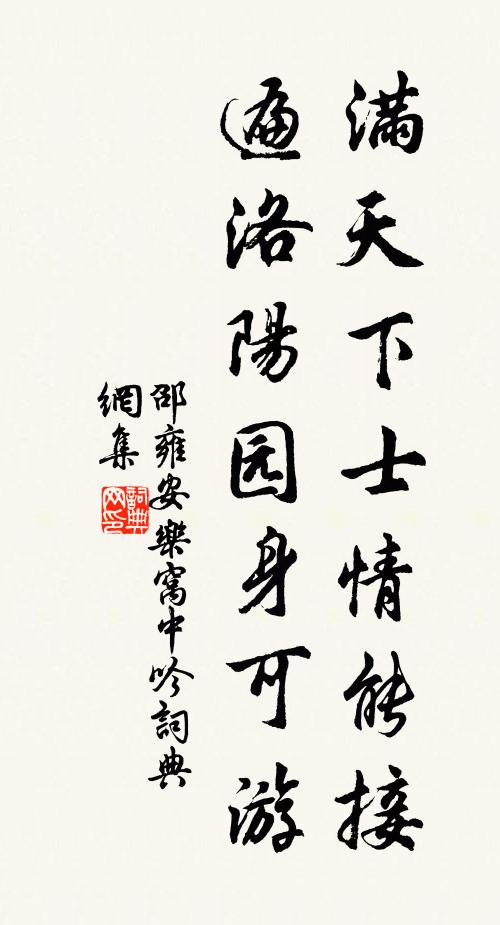 满天下士情能接
遍洛陽园身可游
邵雍安樂窩中吟詞典
網集
詞典
网印